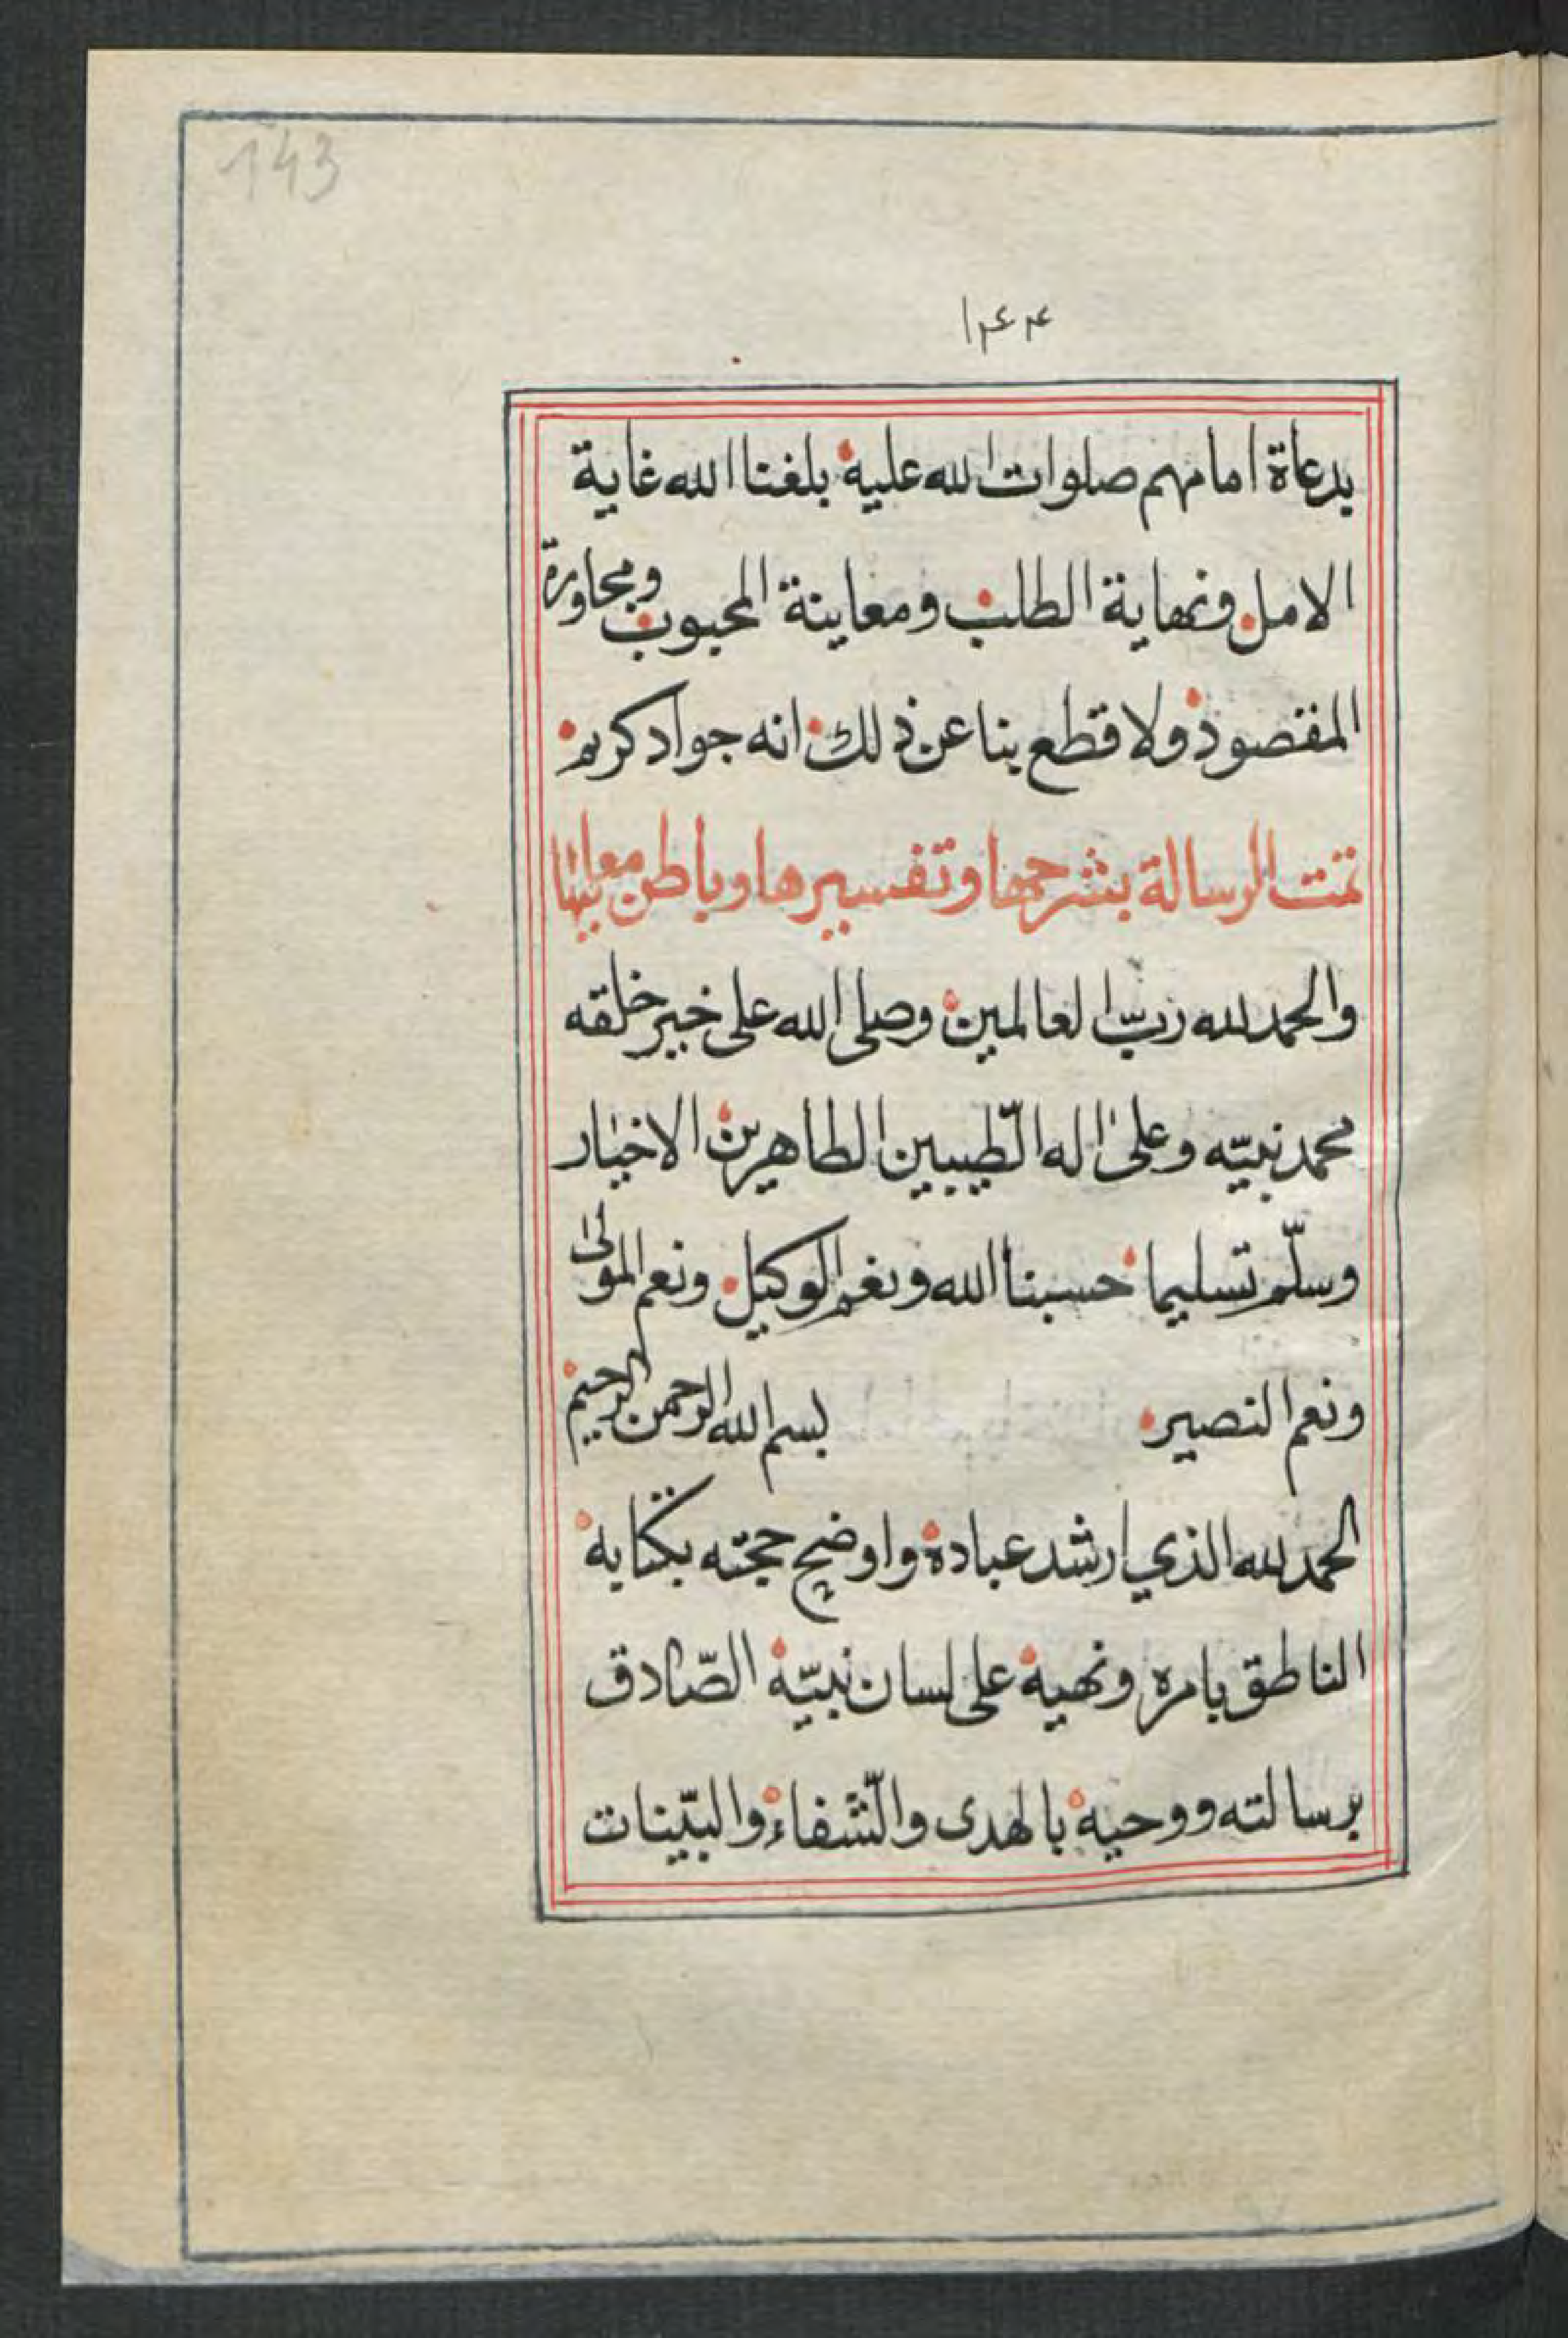 143
١٤٤
بدعاة امامهم صلوات الله عليه بلغنا الله غاية
الامل ونهاية الطلب ومعاينة المحبوب ومجاورة
المقصود ولا قطع بنا عن ذلك انه جواد كريم
تمت الرسالة بشرحها وتفسيرها وباطن معانيها
والحمد لله ربّ العالمين وصلى الله على خير خلقه
محمد نبيّه وعلى اله الطّيبين الطاهرين الاخيار
وسلّم تسليما حسبنا الله ونعم الوكيل ونعم المولى
ونعم النصير بسم الله الرحمن الرحيم
الحمد لله الذي ارشد عباده واوضح حجته بكتابه
الناطق بامره ونهيه على لسان نبيّه الصّادق
برسالته ووحيه بالهدى والشّفاء والبيّنات